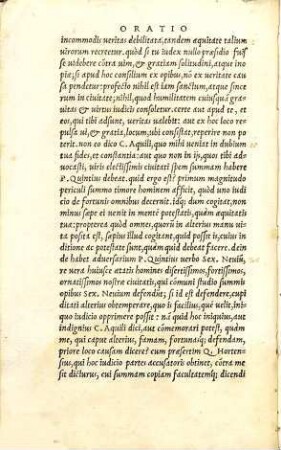 ORATIO
incommodis ueritas debilitata, tandem aequitate talium
uirorum recreetur. quòd si tu iudex nullo praesidio fuis
se uideberis cōtra uim, & gratiam solitudini, atque ino
piæ; si apud hoc consilium ex opibus, nō ex ueritate cau
sa pendetur: profecto nihil est iam sanctum, atque since
rum in ciuitate; nihil, quod humilitatem cuiusquā graui
tas & uirtus iudicis consoletur. certe aut apud te, et
eos, qui tibi adsunt, ueritas ualebit: aut ex hoc loco re
pulsa ui, & gratia, locum, ubi consistat, reperire non pote
rit. non eo dico C. Aquilli, quo mihi ueniat in dubium
tua fides, et constantia: aut quo non in ijs, quos tibi ad=
uocasti, uiris electissimis ciuitatis spem summam habere
P. Quintius debeat. quid ergo est? primum magnitudo
periculi summo timore hominem afficit, quòd uno iudi=
cio de fortunis omnibus decernit. idq; dum cogitat, non
minus saepe ei uenit in mentē potestatis, quàm aequitatis
tuæ: propterea quòd omnes, quorū in alterius manu ui=
ta posita est, sæpius illud cogitant, quid possit is, cuius in
ditione ac potestate sunt, quàm quid debeat facere. dein
de habet aduersarium P. Quintius uerbo Sex. Neuiū,
re uera huiusce ætatis homines disertissimos, fortissimos,
ornatissimos nostræ ciuitatis, qui cōmuni studio summis
opibus Sex. Neuium defendūt; si id est defendere, cupi
ditati alterius obtemperare, quo is facilius, quē uelit, ini=
quo iudicio opprimere possit: nā quid hoc iniquius, aut
indignius C. Aquilli dici, aut cōmemorari potest, quàm
me, qui caput alterius, famam, fortunasq; defendam,
priore loco causam dicere? cum præsertim Q. Horten=
sius, qui hoc iudicio partes accusatoris obtinet, contra me
sit dicturus, cui summam copiam facultatemq; dicendi